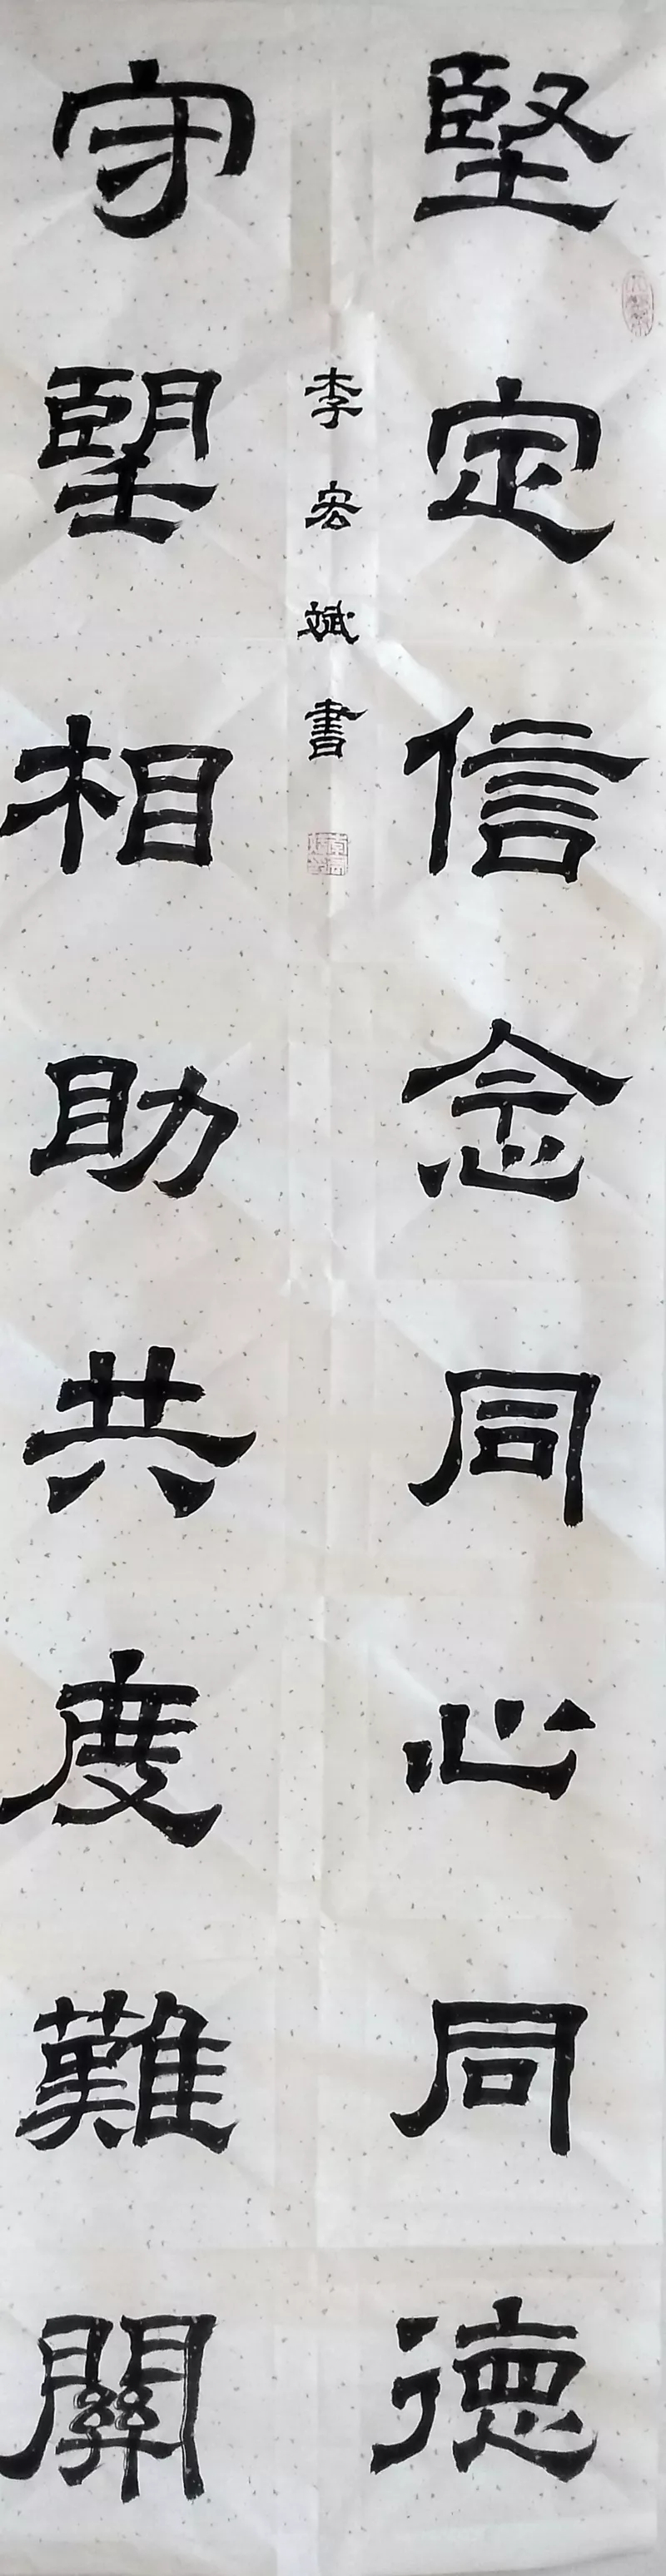 堅定信念同心同德
守望相助共度難關
李宏斌書